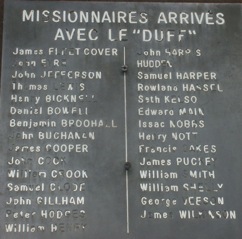 MISSIONNAIRES ARRIVÉS
AVEC LE "DUFF"
James FLEET COVER
John
John JEFFERSON
Thomas
Henry BICKNELL
Daniel BOWELL
Benjamin BROOMHALL
John BUCHANAN
James COOPER
John
William CROOK
Samuel
John GILLHAM
Peter HODGES
William HENRY
John HARRIS
HUDDEN
Samuel HARPER
Rowland HASSEL
Seth KELSO
Edward MAIN
Isaac NOBBS
Henry NOTT
Francis OAKES
James PUCKEY
William SMITH
William SHELLY
George
James WILKINSON